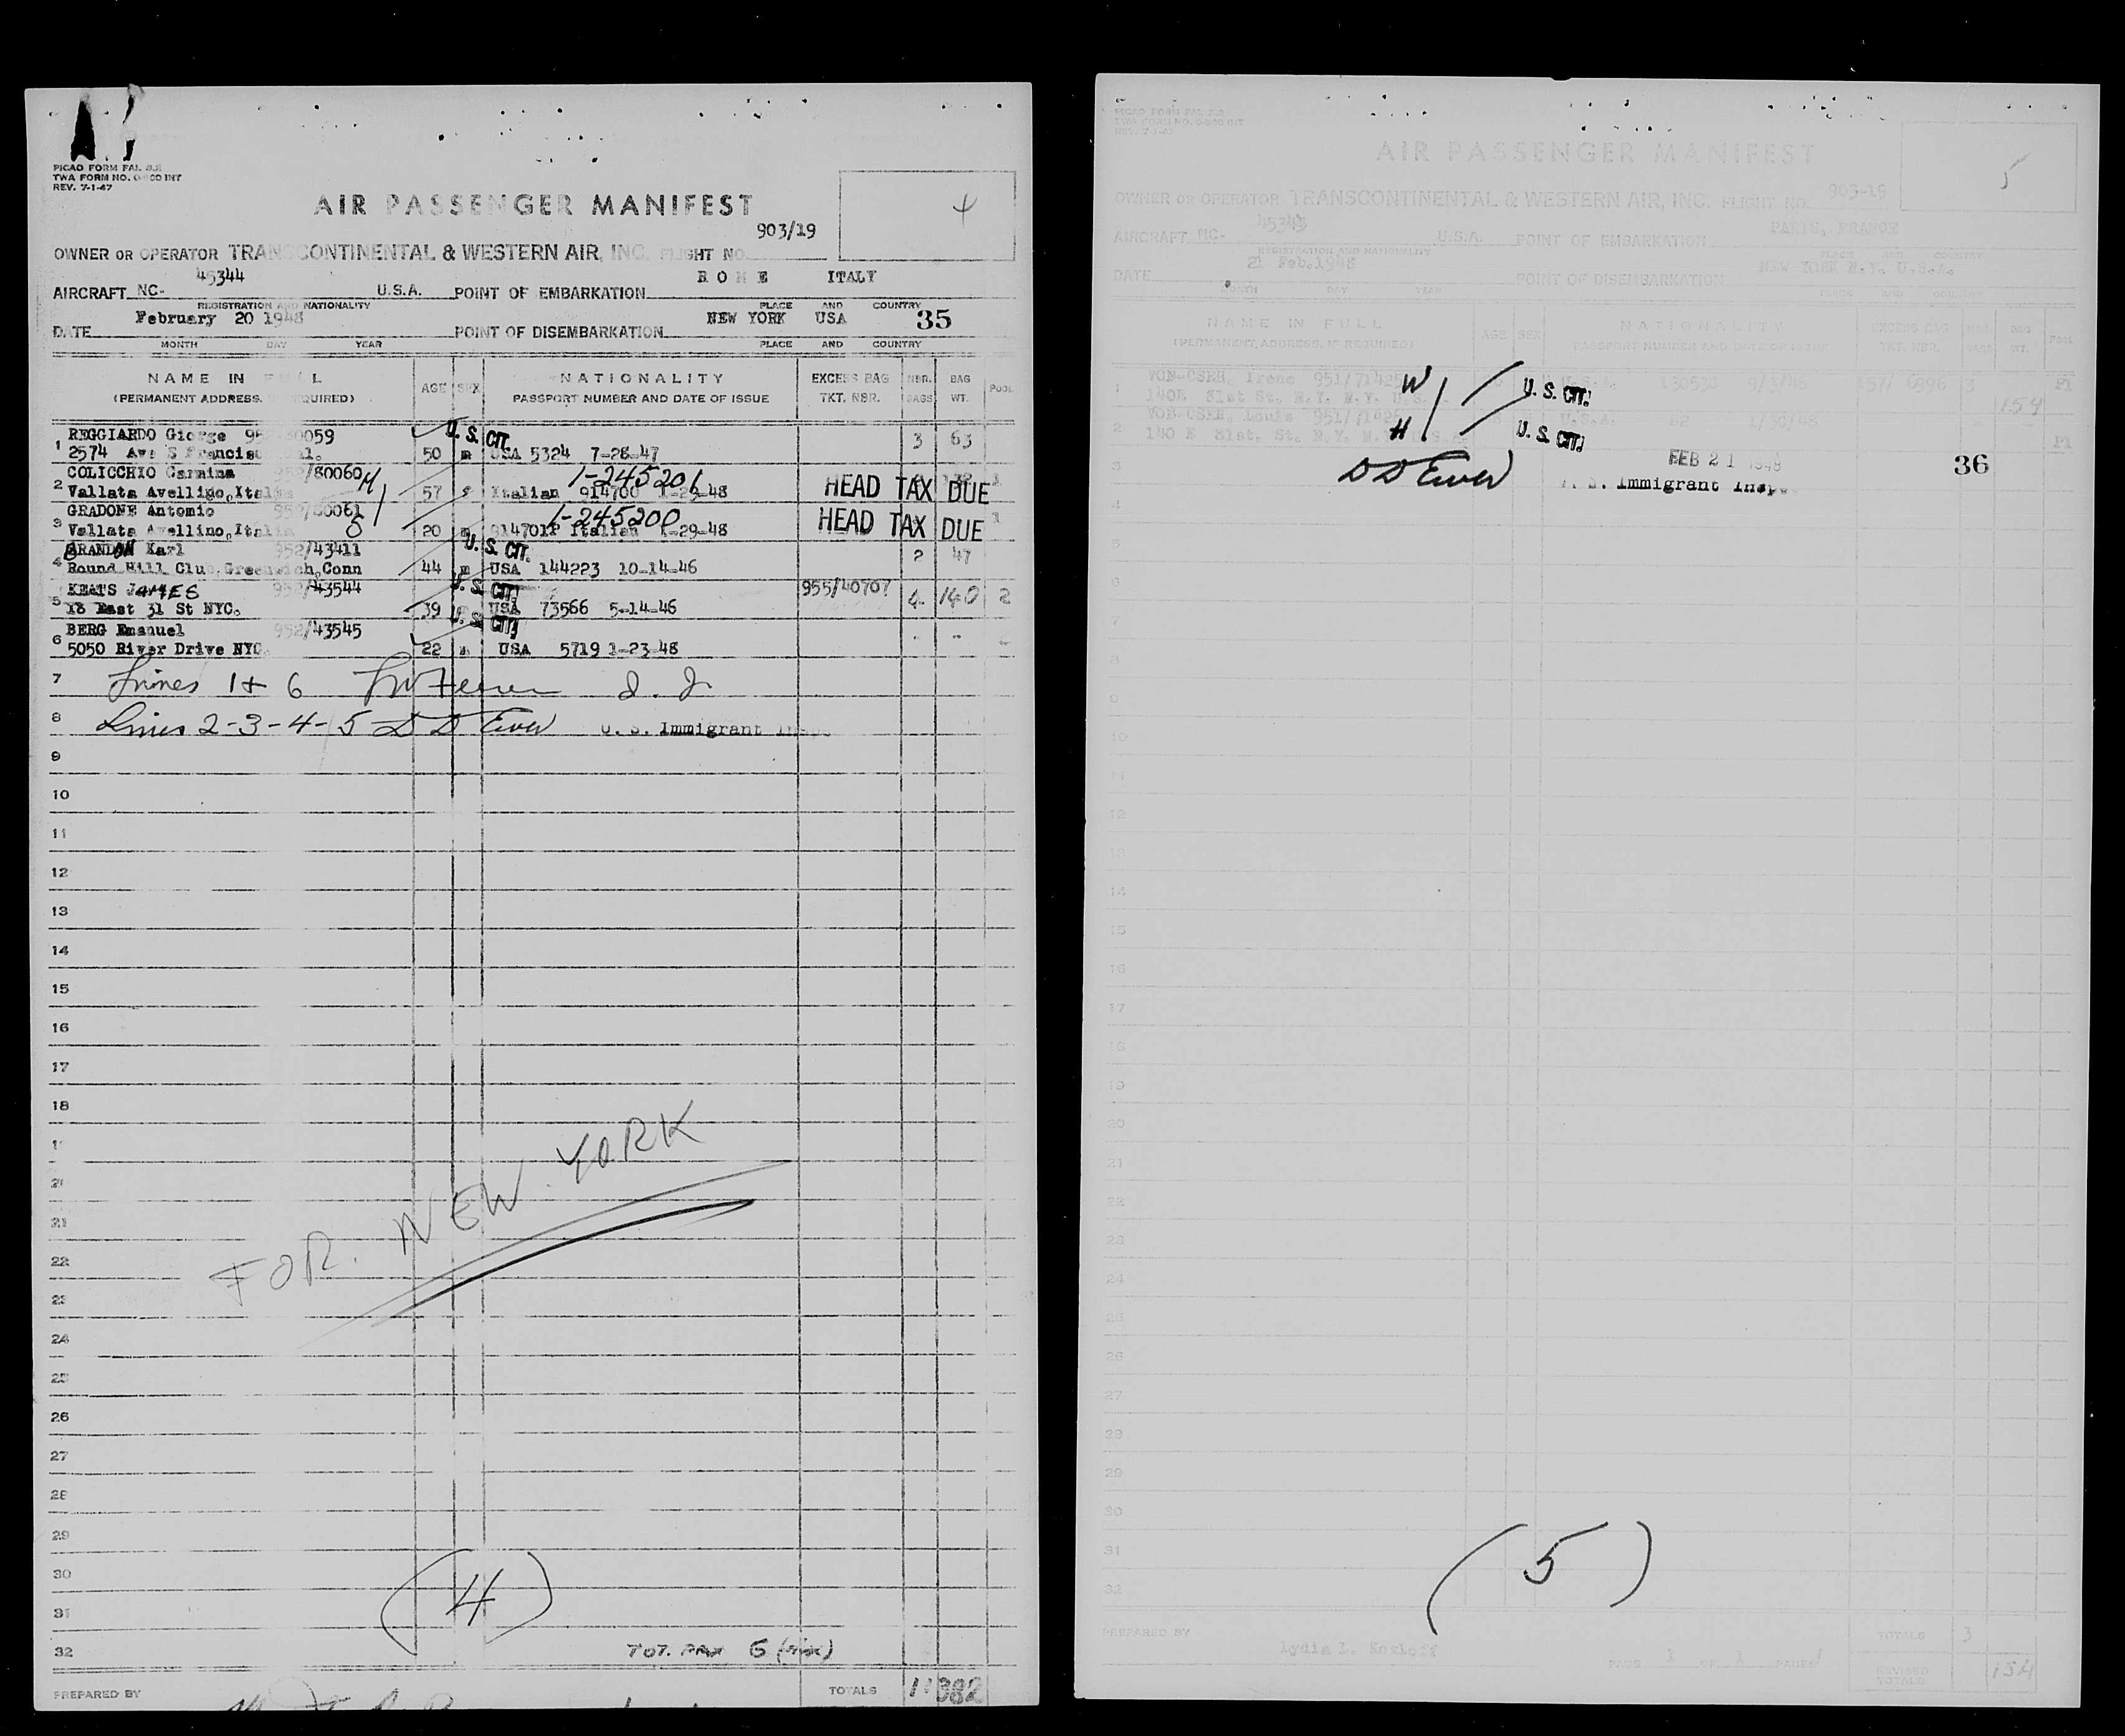 PICAO FORM FAL
TWA FORM NO. INT
REV. 7-1-47
4
AIR PASSENGER MANIFEST
903/19
OWNER OR OPERATOR TRANSCONTINENTAL & WESTERN AIR, INC. FLIGHT NO.
45344 ROME ITALY
AIRCRAFT NC- U.S.A. POINT OF EMBARKATION
REGISTRATION AND NATIONALITY PLACE AND COUNTRY
February 20 1948 NEW YORK USA 35
DATE POINT OF DISEMBARKATION
MONTH DAY YEAR PLACE AND COUNTRY
NAME IN FULL AGE SEX NATIONALITY EXCESS BAG NBR. BAG POOL
(PERMANENT ADDRESS, REQUIRED) PASSPORT NUMBER AND DATE OF ISSUE TKT. NBR. BAGS WT.
REGGIARDO George 0059 U.S. CIT. 3 63
1 2574 Ave S Francis 50 m USA 5324 7-28-47
COLICCHIO Carmina /80060 M 1-245201
2 Vallata Avellino, Ital 57 f Italian 914700 1-29-48 HEAD TAX DUE
GRADONE Antonio /80061 1-245200
3 Vallata Avellino, Ital S 20 m 914701P Italian 1-29-48 HEAD TAX DUE 1
BRANDON Karl 952/43411 U.S. CIT. 2 47
4 Round Hill Club Greenwich, Conn 44 m USA 144223 10-14-46
KEATS JAMES 952/43544 U.S. CIT. 955/40707
5 18 East 31 St NYC. 39 USA 73566 5-14-46 4 140 2
BERG Emanuel 952/43545 U.S. CIT.
6 5050 River Drive NYC. 22 USA 5719 1-23-48
7 Lines 1 + 6
8 Lines 2-3-4-5 D D Ewer U. S. Immigrant
9
10
11
12
13
14
15
16
17
18
FOR. NEW YORK
21
22
23
24
25
26
27
28
29
30
(4)
31
32 TOT. PAX 6 (six)
PREPARED BY TOTALS 11 382
5
AIR PASSENGER MANIFEST
OWNER OR OPERATOR TRANSCONTINENTAL & WESTERN AIR, INC. FLIGHT NO. 903-19
45343 PARIS, FRANCE
AIRCRAFT NC- U.S.A. POINT OF EMBARKATION
REGISTRATION AND NATIONALITY PLACE AND COUNTRY
21 Feb.1948 NEW YORK N.Y. U.S.A.
DATE POINT OF DISEMBARKATION
MONTH DAY YEAR PLACE AND COUNTRY
NAME IN FULL AGE SEX NATIONALITY EXCESS BAG BAG POOL
(PERMANENT ADDRESS, IF REQUIRED) PASSPORT NUMBER AND DATE OF ISSUE TKT. NBR. BAGS WT.
1 Irene W U. S. CIT.
140E 81st St. N.Y. N.Y. 154
2 Louis H U. S. CIT.
140 E 81st. St. N.Y.
D D Ewer FEB 21 1948 36
Immigrant
3
4
5
6
7
8
9
10
11
12
13
14
15
16
17
18
19
20
21
22
23
24
25
26
27
28
29
30
(5)
31
32
PREPARED BY TOTALS 3
Lydia L. Kozloff PAGE 1 OF 1 PAGES
REVISED TOTALS 154